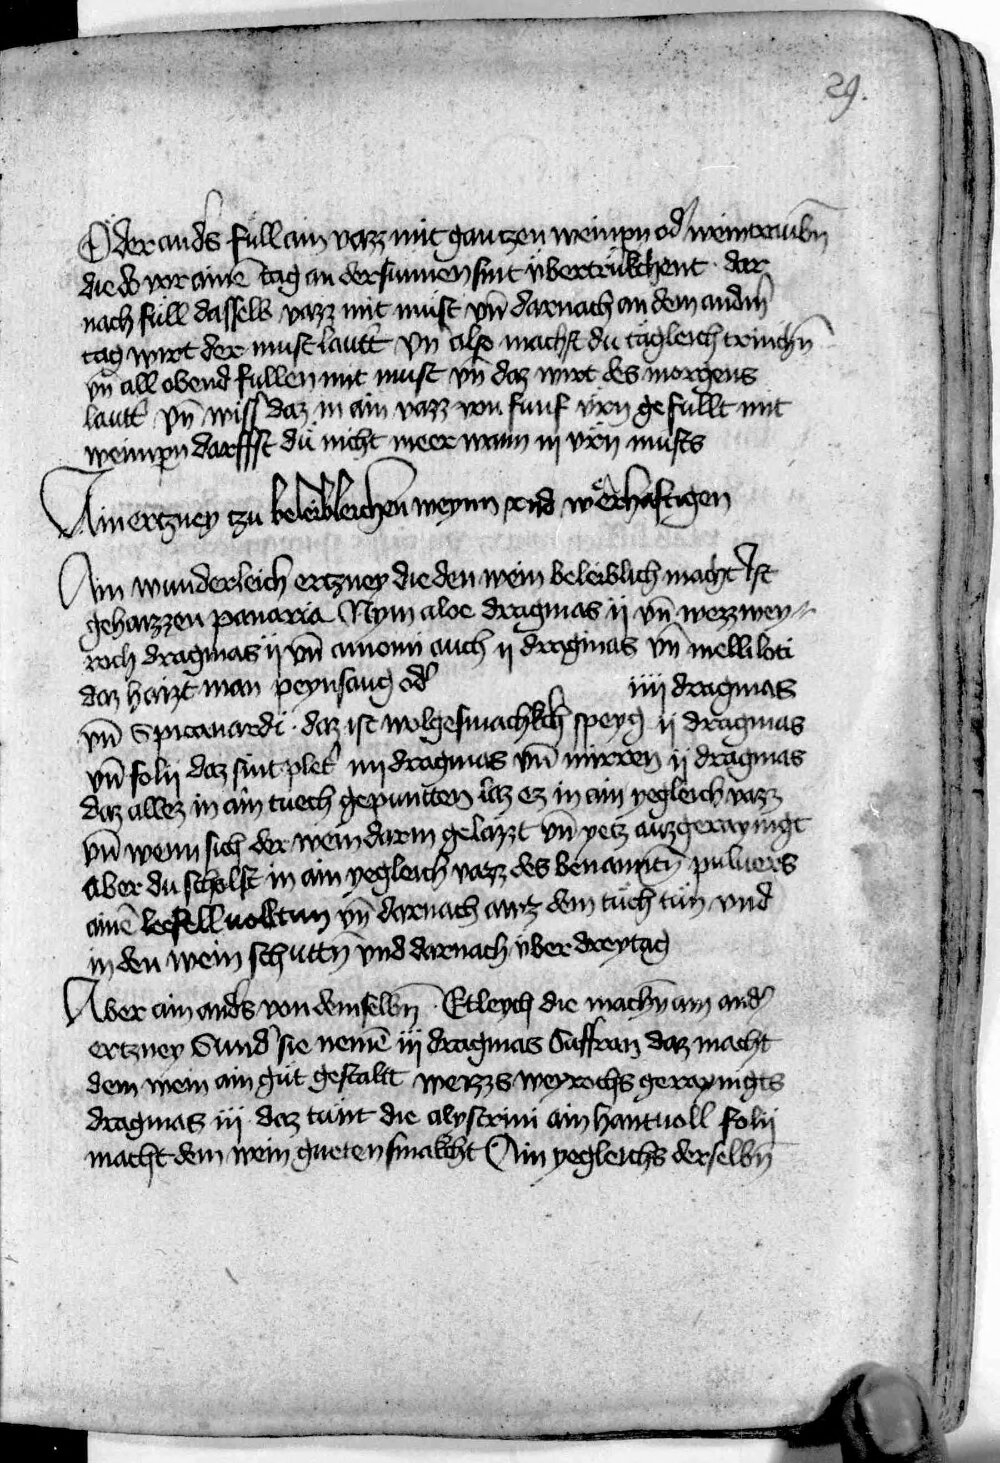 29.
Oder anders füll ain vazz mit gantzen weinpern od' weintraubn̄
die do vor ainē tag an der sunnen sint übertrükchent · dar
nach füll dasselb vazz mit must vn̄ darnach an dem andern̄
tag wirt der must lautt' vn̄ also machst du tägleich trinchn̄
vn̄ all obend füllen mit must vn̄ daz wirt des morgens
lautt' vn̄ wiss daz in ain vazz von fünf vrn gefüllt mit
weinpern darffst dü nicht meer wann iij vrn musts
Ain ertzney tzu beleibleichen weynn vnd werhaftigen
Ain wunderleich ertzney die den wein beleiblich macht Ist
gehaizzen panaria Nym aloe dragmas ij vn̄ weizz wey
roch dragmas ij vn̄ amomi auch ij dragmas vn̄ melliloti
daz haizt man peynsaug od' iiij dragmas
vn̄ Spicanardi · daz ist wolgesmachkch speyg ij dragmas
vn̄ folij daz sint plet' iiij dragmas vn̄ mirren ij dragmas
daz allez in ain tuech gepunten laz ez in ain yegleich vazz
vn̄ wenn sich der wein darin geläzt vn̄ yetz auzgerayingt
Aber du scholst in ain yegleich vazz des benantn̄ puluers
ainē leffell vol tun vn̄ darnach auz dem tuch tün vnd
in den wein schuttn̄ vnd darnach über drey tag
Aber ain anders von demselbn̄ · Etleych die machn̄ ain and'
ertzney Sund' sie nemē iij dragmas Saffran daz macht
dem wein ain güt gestallt weizzs weyrochs gerayingts
dragmas iij daz tünt die alystrini ain hantuoll folij
macht dem wein gueten smakcht Ain yegleichs derselbn̄